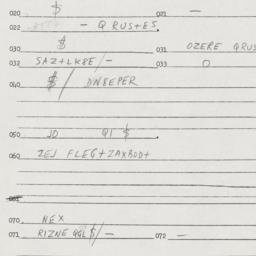 020 $ 021 —
022 — QRUS+ES.
030 $ 031 OZERE QRUS
032 SAZ+LK8E/— 033 O
040 $/ DW8EPER
050 JD QI $.
060 ZEJ FLEG+ZAXBOD+
061
070 NEX
071 RIZNE QGL$/— 072 —